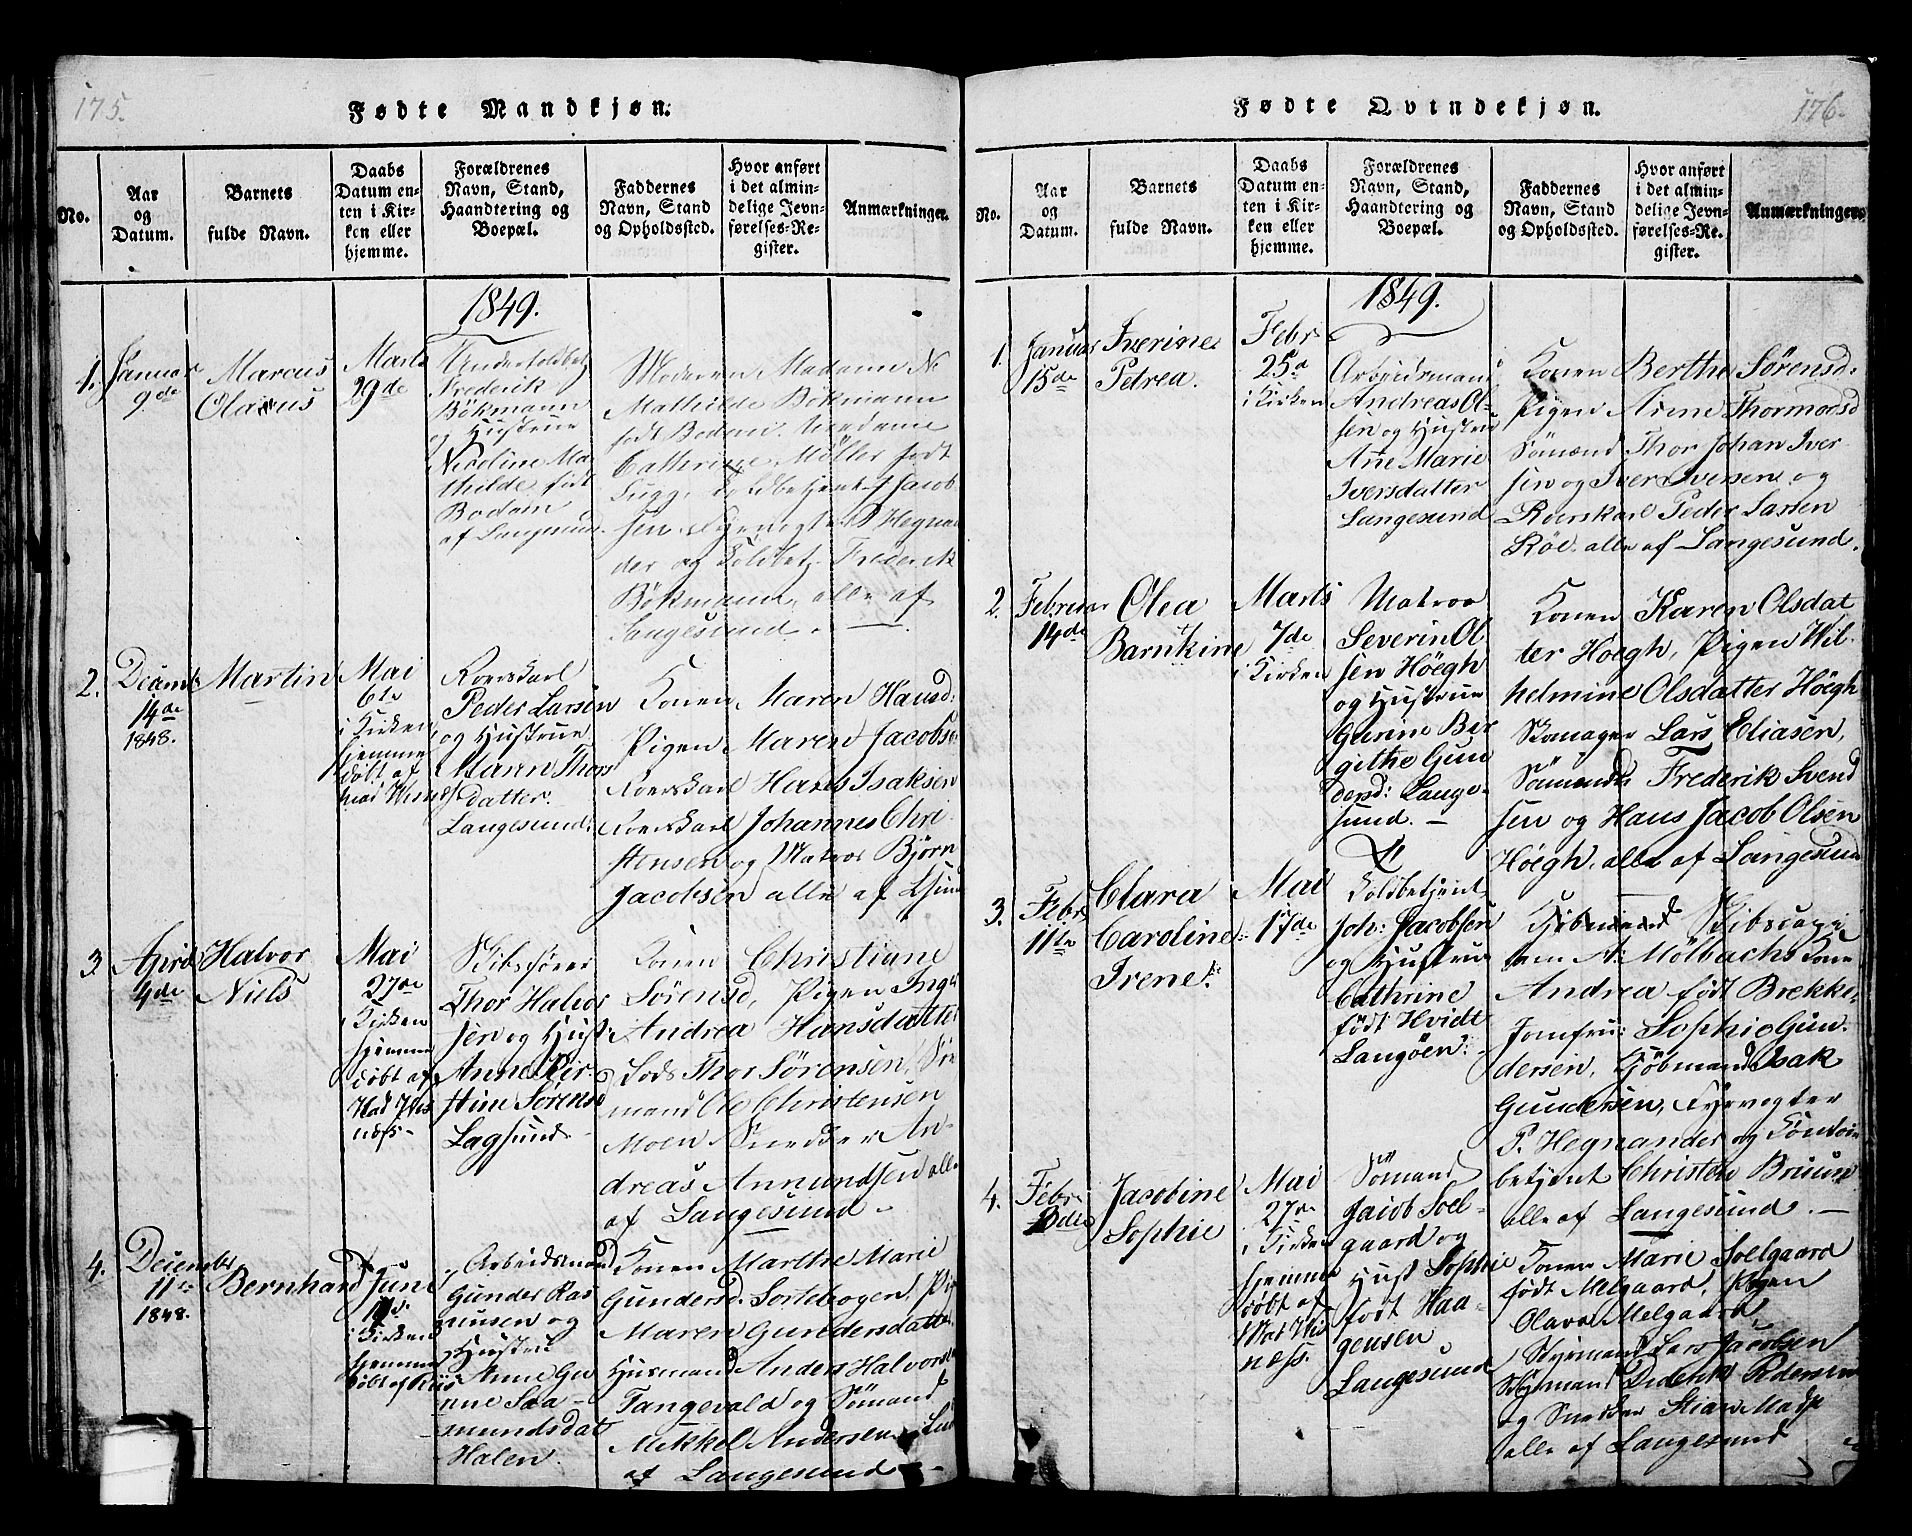 175.
Fødte Mandkjøn.
No.
Aar
og
Datum.
Barnets
fulde Navn.
Daabs
Datum en-
ten i Kir-
ken eller
hjemme.
Forældrenes
Navn, Stand,
Haandtering og
Boepæl.
Faddernes
Navn, Stand
og Opholdssted.
Hvor anført
i det almin-
delige Jevn-
førelses-Re-
gister.
Anmærkninger.
1849.
1.
Januar
9de
Marcus
Olaus
Marts
29de
Undertoldbetj
Frederik
Bökmann
og Hustrue
Nicoline Ma-
thilde, født
Bodom
af Langesund.
Moderen Madame N.
Mathilde Bökmann
født Bodom. Madame
Cathrine Möller født
Toldbetjent Jacob
sen. Fyrvogter P. Hegna
der og Toldbetj. Frederik
Bökmann, alle af
Langesund.
2.
Decemb
14de
1848.
Martin
Mai
6te
i Kirken
hjemme
døbt af
Mad Wisnes
Roerskarl
Peder Larsen
og Hustrue
Maren Thors
datter.
Langesund.
Konen Maren Hansd:
Pigen Maren Jacobs
Roerskarl Hans Isaksen
Roerskarl Johannes Chri-
stensen og Matros Bjørn
Jacobsen alle af L.sund
3.
April
4de
Halvor
Niels
Mai
27de
i Kirken
hjemme
døbt af
Mad Wis
næss-
Skibsfører
Thor Halvor
sen og Hust:
Anne Kir-
stine Sörensd
Lagsund-
Konen Christiane
Sörensd, Pigen Inge
Andrea Hansdatter
Lods Thor Sörensen, Sö
mand Ole Christensen
Moen Snedker An-
dreas Anmundsen alle
af Langesund.
4.
December
11te
1848.
Bernhard
Juni
i Kirken
hjemme
døbt af Riis
Arbeidsmand
Gunder Ras
musen og
Hustru
Anne Gu
nne Saa-
mundsdat
Halen.
Konen Marthe Marie
Gundersd. Sortebogen, Pig
Maren Gundersdatter
Husmand Anders Halvorsen
Tangevald og Sömand
Mikkel Andersen
af Langesund.
176.
Fødte Qvindekjøn.
No.
Aar
og
Datum.
Barnets
fulde Navn.
Daabs
Datum en-
ten i Kir-
ken eller
hjemme.
Forældrenes
Navn, Stand,
Haandtering og
Boepæl.
Faddernes
Navn, Stand
og Opholdssted.
Hvor anført
i det almin-
delige Jevn-
førelses-Re-
gister.
Anmærkninger.
1849.
1.
Januar
15de
Iverine
Petrea.
Febr
25d
i Kirken
Arbeidsmand
Andreas Ol-
sen og Hustru
Ane Marie
Iversdatter
Langesund
Konen Berthe Sörensd:
Pigen Anne Thormoesd
Sömænd Thor Johan Iver-
sen og Iver Iversen og
Roerskarl Peder Larsen
Röe. alle af Langesund.
2.
Februar
14de
Olea
Barntine
Marts
7de
i Kirken
Matros
Severin Ol
sen Höegh
og Hustrue
Gurine Ber
githe Gun
dersd: Lange-
sund. -
Konen Karen Olsdat
ter Höegh, Pigen Wil-
helmine Olsdatter Höegh
Skomager Lars Eliasen,
Sömænd Frederik Svend
sen og Hans Jacob Olsen
Höegh, alle af Langesund
3.
Febr
11te
Clara
Caroline
Irene.
Mai
17de
Toldbetjent
Joh: Jacobsen
og Hustrue
Cathrine
født Hvidt
Langöen.
Kjøbmand Skibscapi
tain A. Mölbachs Kone
Andrea født Brekke,
Jomfru: Sophie Gun-
dersen, Kjöbmand Isak
Gundersen, Fyrvogter
P. Hegnander og Kontoir
betjent Christen Bruun
alle af Langesund. -
4.
Febr
Jacobine
Sophie
Mai
27de
i Kirken
hjemme
døbt af
Mad Wis
næss.
Sömand
Jacob Soel-
gaard og
Hust Sophie
født Haa-
gensen
Langesund
Konen Marie Soelgaard
født Melgaard, Pigen
Olava Melgaard,
Styrmand Lars Jacobsen
Styrmand Diderik Pedersen
og Snedker Stian Mads
alle af Langesund